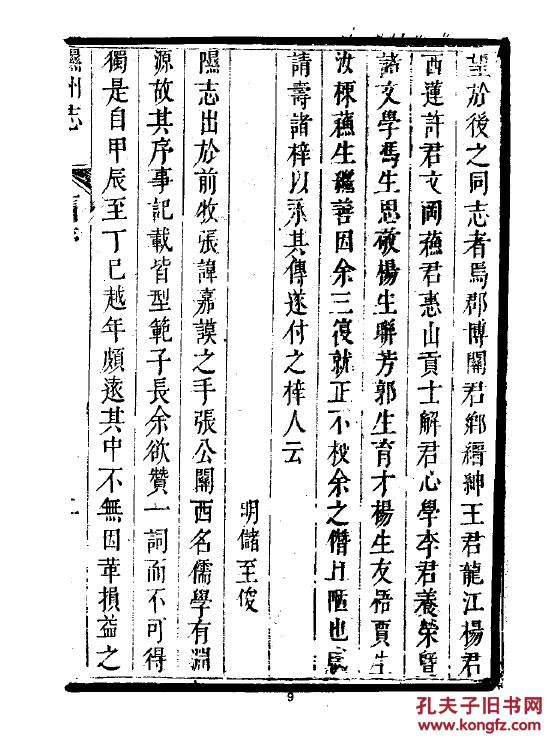 望於後之同志者焉郡博關君鄉縉紳王君龍江楊君
西蓮許君文岡蘓君惠山貢士解君心學李君養榮曁
諸文學馮生思敬楊生聯芳郭生育才楊生友梧賈生
汝楝蘓生繼善因余三復就正不校余之僭且陋也
請壽諸梓以永其傳遂付之梓人云
明儲至俊
隰志出於前牧張諱嘉謨之手張公關西名儒學有淵
源故其序事記載皆型範子長余欲贊一詞而不可得
獨是自甲辰至丁巳越年頗遠其中不無因革損益之
隰州志
9
孔夫子旧书网
www.kongfz.com